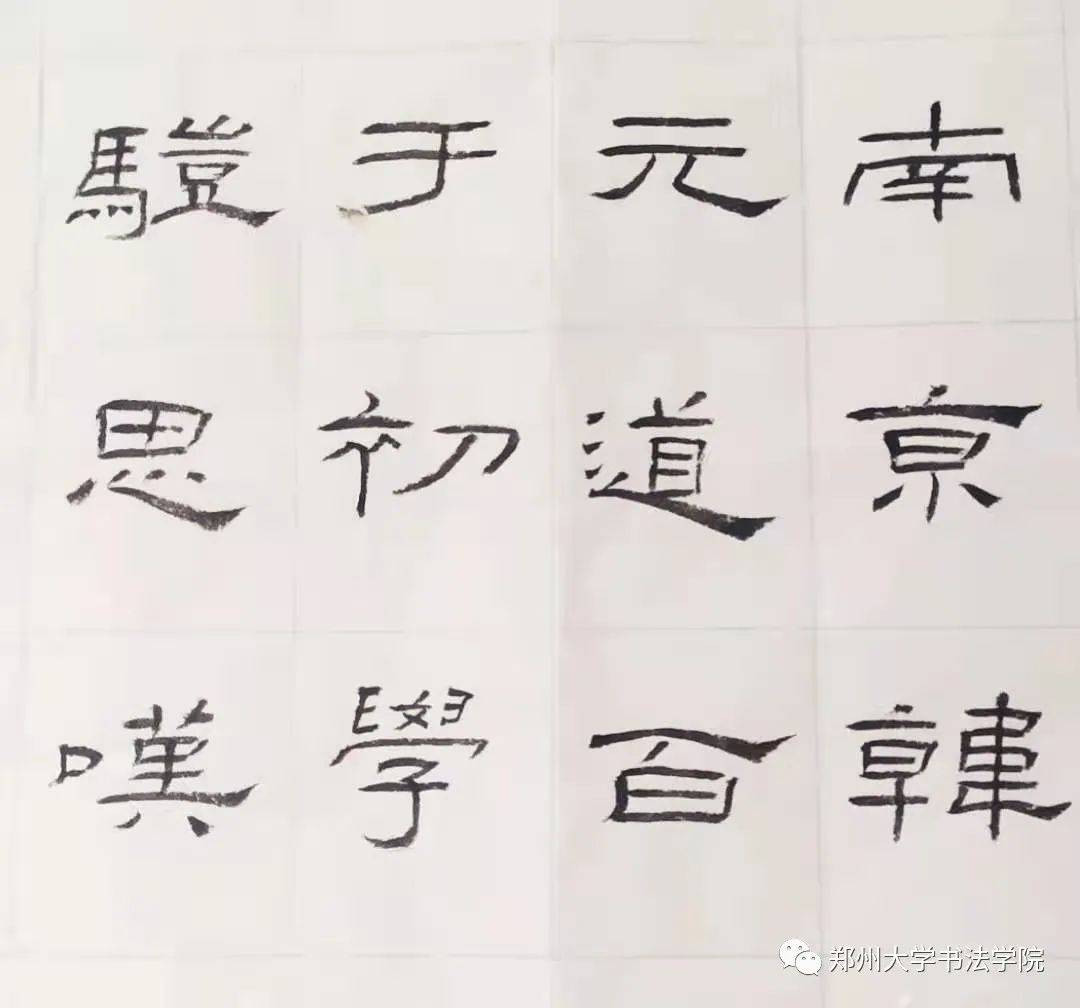 南京韓
元道百
于初學
驥思嘆
郑州大学书法学院